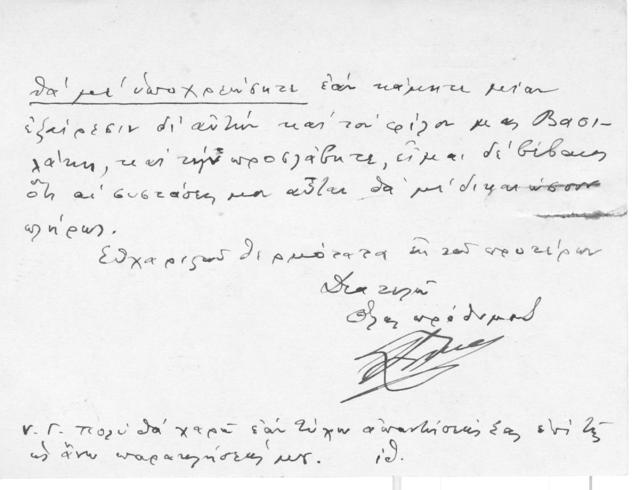 θά με ὑποχρεώσητε ἐάν κάμητε μίαν
ἐξαίρεσιν δι' αὐτήν καί τόν φίλον μας Βασι-
λάκην, καί τήν προσλάβητε, εἶμαι δέ βέβαιος
ὅτι αἱ συστάσεις μου αὗται θά μέ δικαιώσουν
πλήρως.
Εὐχαριστῶν θερμότατα ἐκ τῶν προτέρων
Διατελῶ
ὅλως πρόθυμος
υ.γ. πολύ θά χαρῶ ἐάν τύχω ἀπαντήσεώς σας ἐπί τῆς
ὡς ἄνω παρακλήσεώς μου. ἰδ.